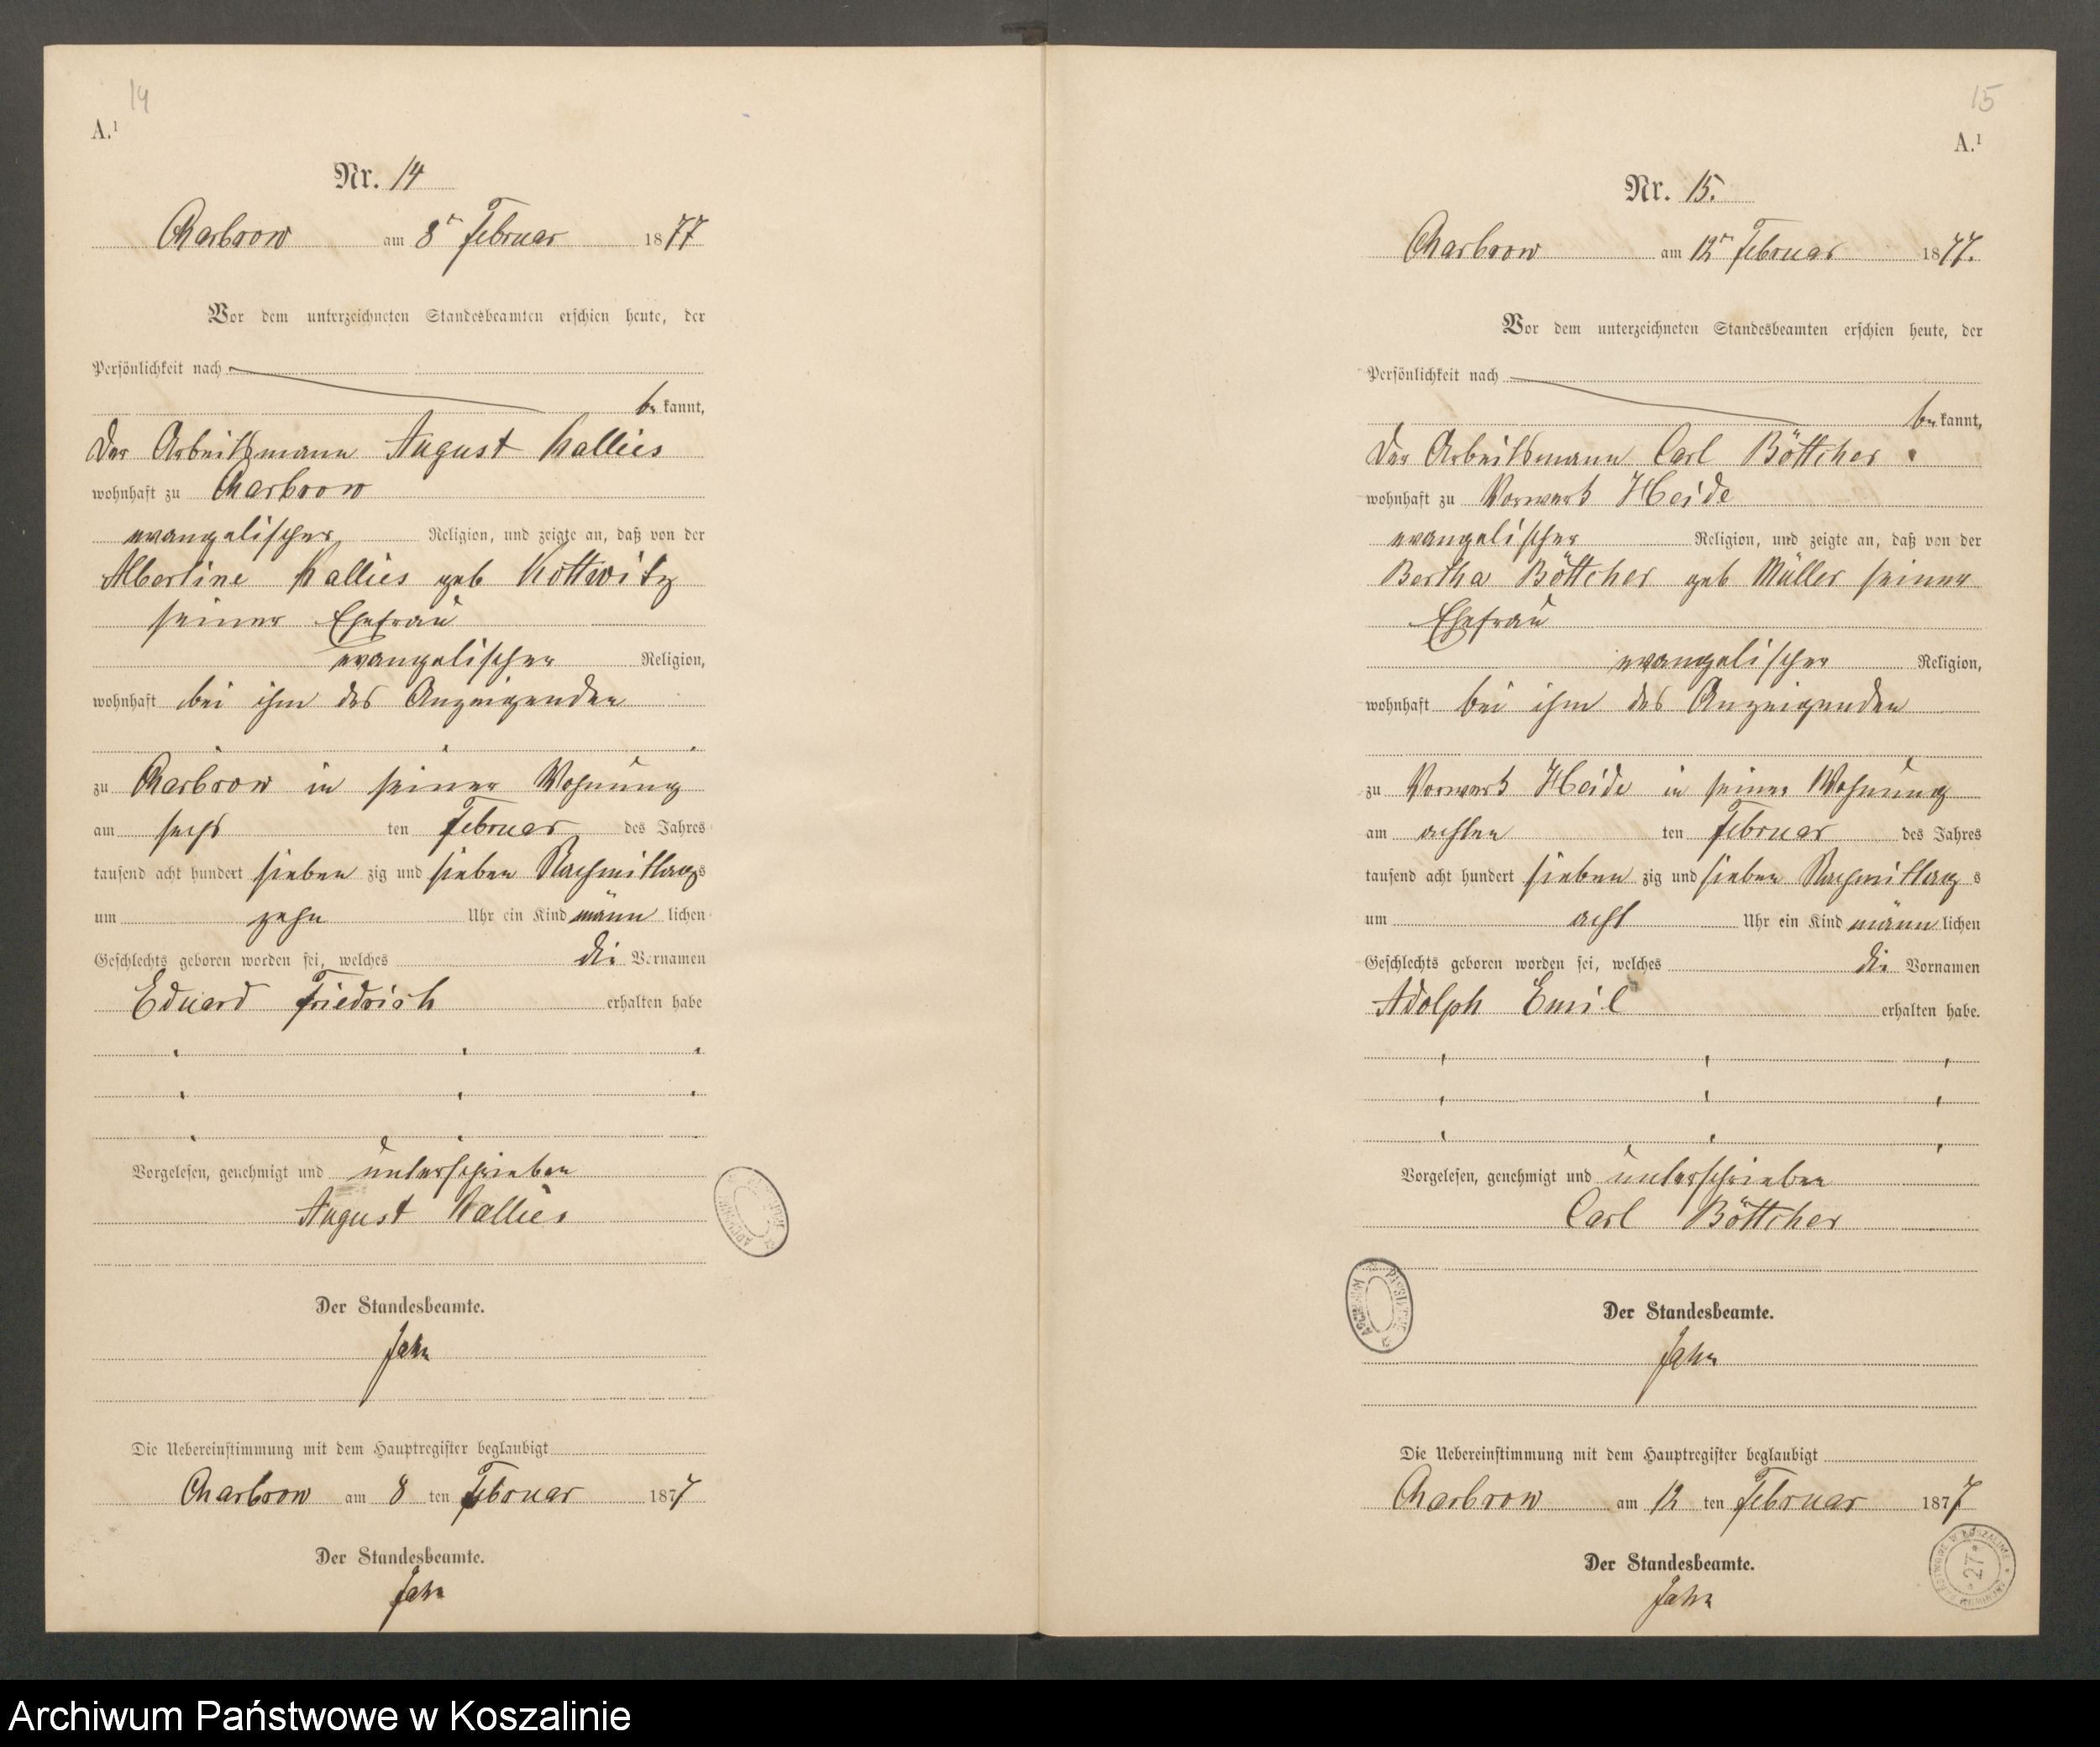 14
A.¹
Nr. 14
Charbrow am 8ᵗ Februar 1877
Vor dem unterzeichneten Standesbeamten erschien heute, der
Persönlichkeit nach
be kannt,
der Arbeitsmann August Kallies
wohnhaft zu Charbrow
evangelischer Religion, und zeigte an, daß von der
Albertine Kallies geb Kottwitz
seiner Ehefrau
evangelischer Religion,
wohnhaft bei ihm des Anzeigenden
zu Charbrow in seiner Wohnung
am sechs ten Februar des Jahres
tausend acht hundert sieben zig und sieben Nachmittags
um zehn Uhr ein Kind männ lichen
Geschlechts geboren worden sei, welches die Vornamen
Eduard Friedrich erhalten habe
Vorgelesen, genehmigt und unterschrieben
August Kallies
Der Standesbeamte.
Jahn
Die Uebereinstimmung mit dem Hauptregister beglaubigt
Charbrow am 8 ten Februar 1877
Der Standesbeamte.
Jahn
15
A.¹
Nr. 15.
Charbrow am 12ᵗ Februar 1877.
Vor dem unterzeichneten Standesbeamten erschien heute, der
Persönlichkeit nach
be kannt,
der Arbeitsmann Carl Böttcher
wohnhaft zu Vorwerk Heide
evangelischer Religion, und zeigte an, daß von der
Bertha Böttcher geb Müller seiner
Ehefrau
evangelischer Religion,
wohnhaft bei ihm des Anzeigenden
zu Vorwerk Heide in seiner Wohnung
am achten ten Februar des Jahres
tausend acht hundert sieben zig und sieben Nachmittag s
um acht Uhr ein Kind männ lichen
Geschlechts geboren worden sei, welches die Vornamen
Adolph Emil erhalten habe.
Vorgelesen, genehmigt und unterschrieben
Carl Böttcher
Der Standesbeamte.
Jahn
Die Uebereinstimmung mit dem Hauptregister beglaubigt
Charbrow am 12 ten Februar 1877
Der Standesbeamte.
Jahn
27
Archiwum Państwowe w Koszalinie